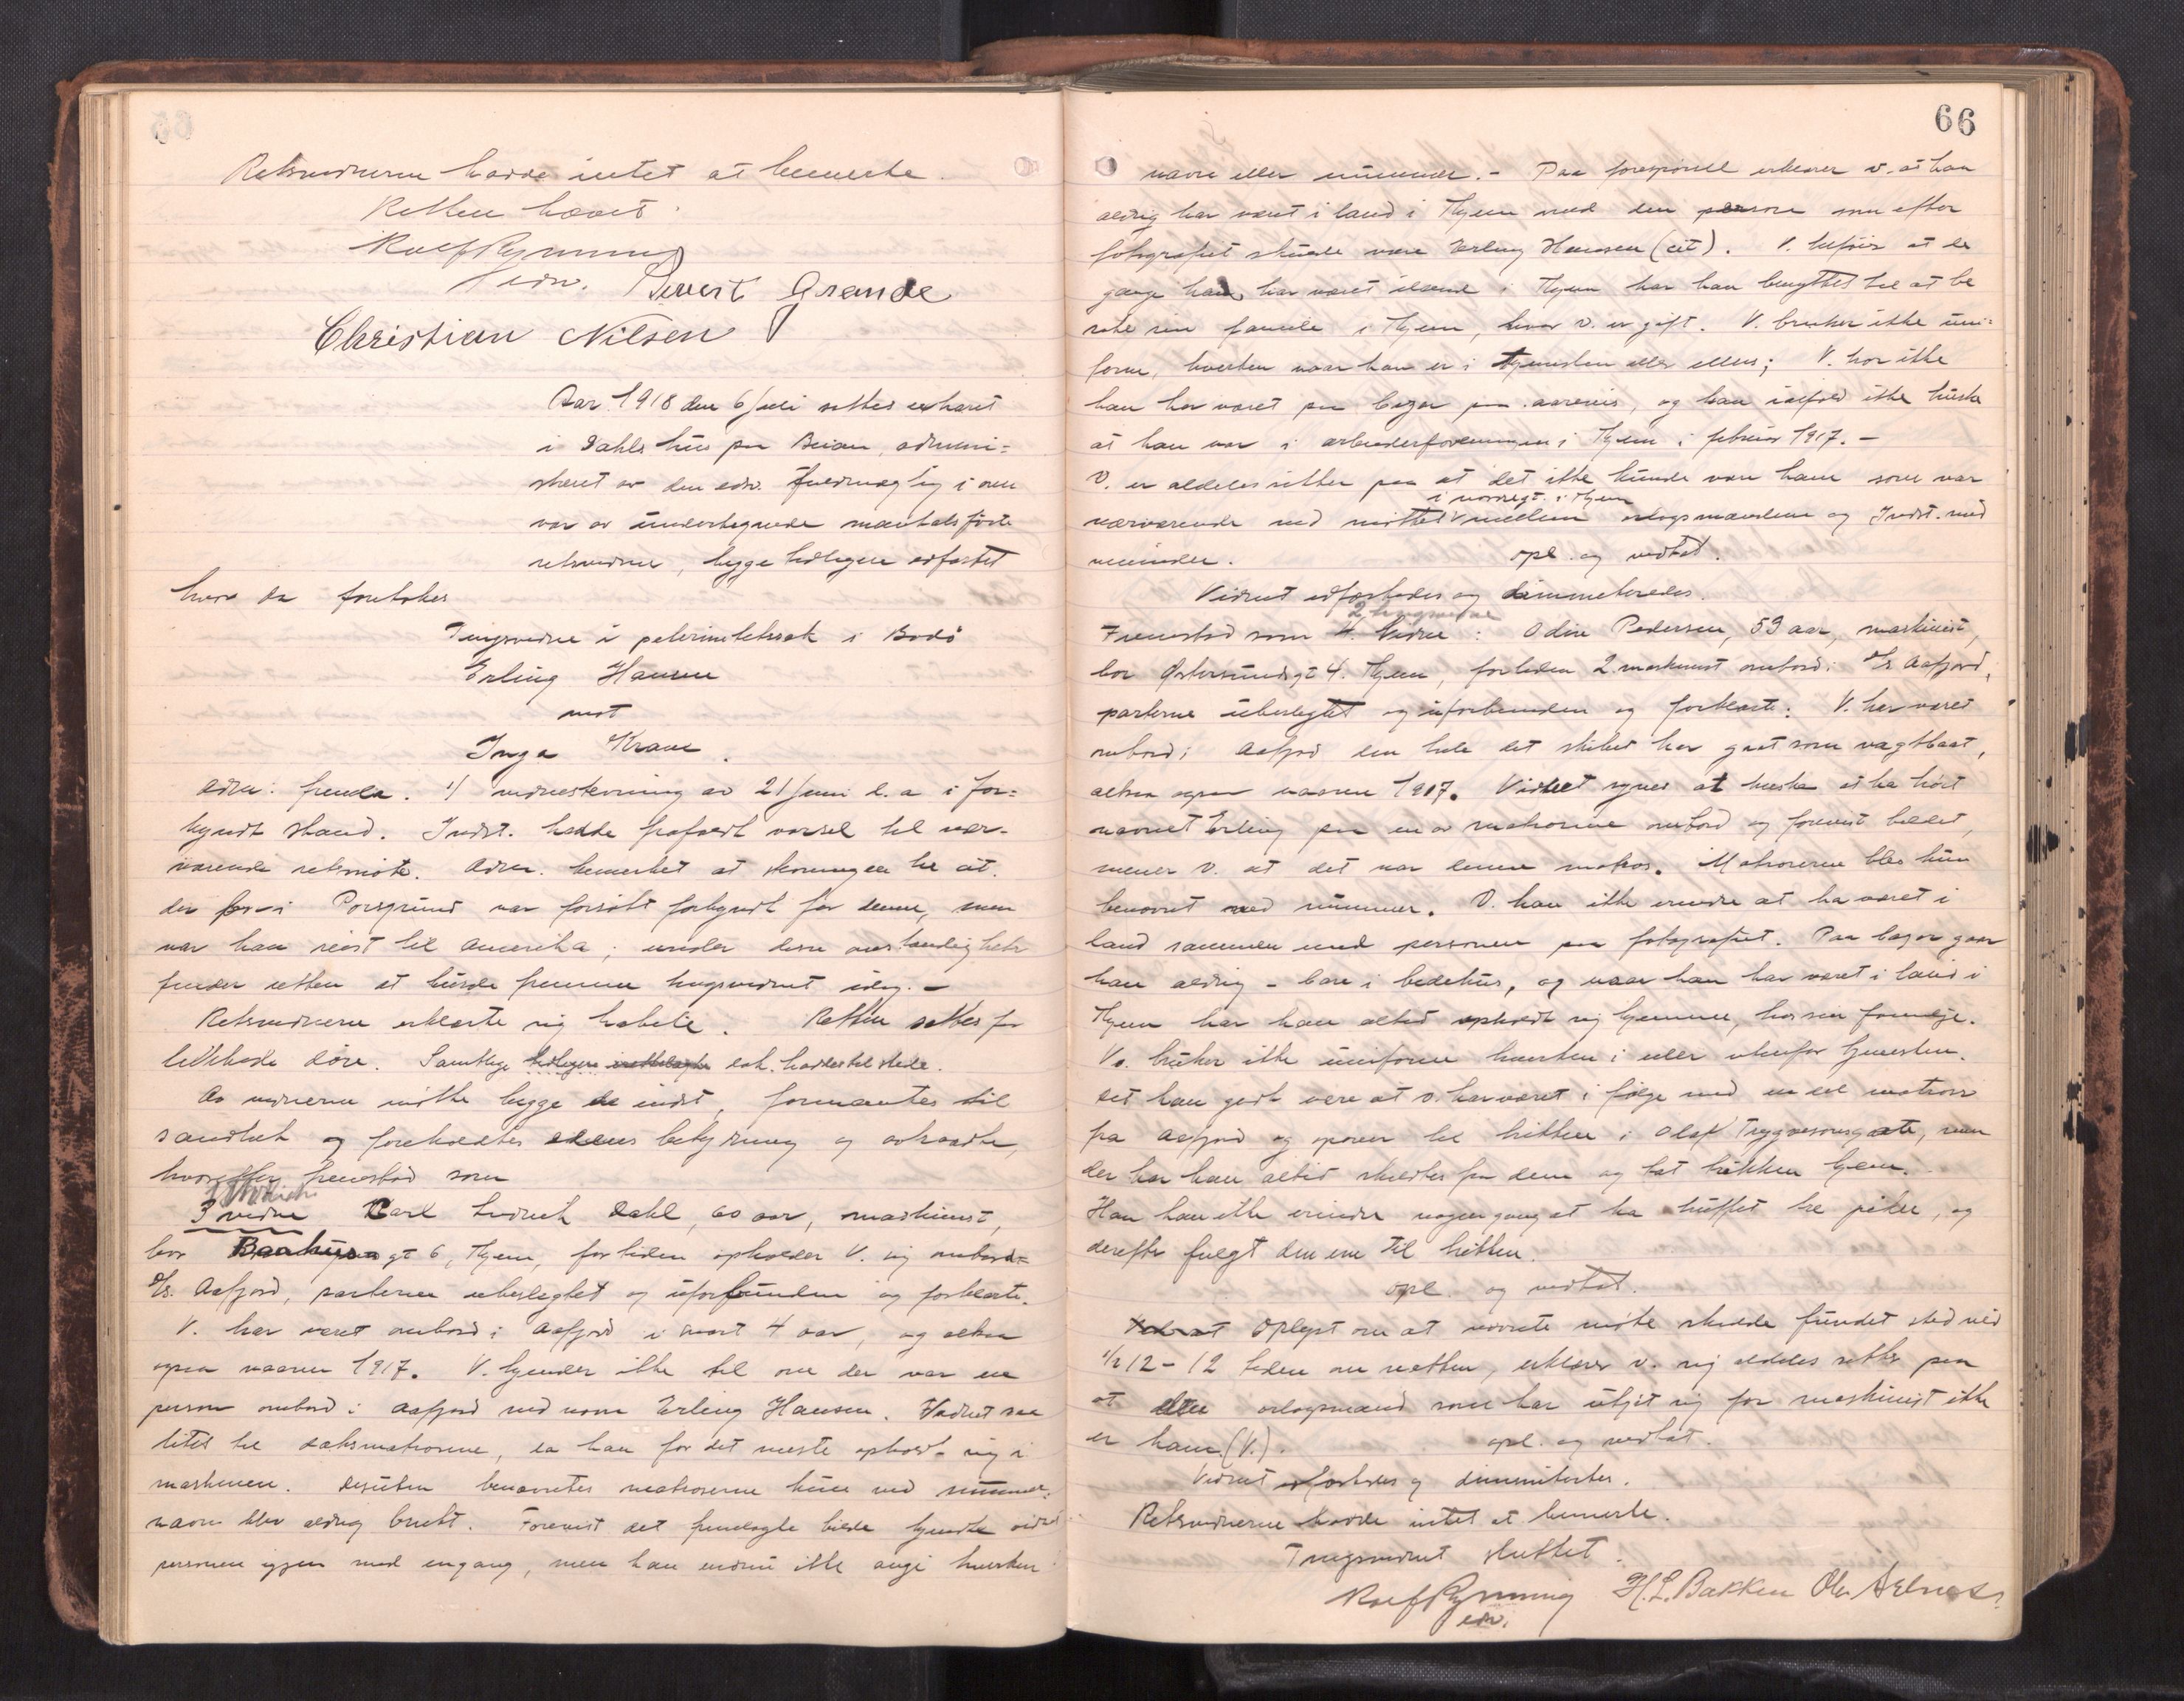 Retsvidnerne hadde intet at bemerke.
Retten hævet.
Rolf Rynning
edsv. Sivert Grande
Christian Nilsen
Aar 1918 den 6 juli sattes extraret
i Dahls hus paa Beian, admini-
streret av den edsv. fuldmægtig i over
vær av undertegnede mantalsførte
retsvidner, begge tidligere edfæstet
hvor da foretokes
Tingsvidne i paternitetssak i Bodø
Erling Hansen
mot
Inga Krane.
Adm: fremla. 1/ vidnestevning av 21 juni d. a i for-
kyndt stand. Indst. hadde frafaldt varsel til nær-
værende retsmøte. Adm. bemerket at stevningen til at.
der før i Porsgrund var forsøkt forkyndt for denne, men
var han reist til Amerika; under disse omstændigheter
finder retten at burde fremme tingsvidnet idag. -
Retsvidnerne erklærte sig habile. Retten sattes for
lukkede døre. Samtlige tidligere dok. hadtes til stede.
Av vidnerne møtte begge de indst, formantes til
sandhet og foreholdtes edens betydning og ansvar,
hvorefter fremstod som
3 vidne Carl Fredrik Dahl, 60 aar, maskinist,
bor gt 6, Thjem, for tiden opholder V. sig ombord i
D/s. Aafjord, parterne ubeslegtet og uforbunden og forklarte.
V. har været ombord i Aafjord i snart 4 aar, og altsaa
ogsaa vaaren 1917. V. kjender ikke til om der var en
person ombord i Aafjord ved navn Erling Hansen. Vidnet saa
litet til dæksmatroserne, da han for det meste opholdt sig i
maskinen. Desuten benævntes matroserne kun ved nummer,
navn blev aldrig brukt. Forevist det fremlagte bilde kjendte vidnet
personen igjen med engang, men kan endnu ikke angi hverken
66
navn eller nummer. - Paa forespørsel erklærer v. at han
aldrig har været i land i Thjem med den person som efter
fotografiet skulde være Erling Hansen (cit). V. tilføier at de
gange han har været iland i Thjem har han benyttet til at be
søke sin familie i Thjem, hvor v. er gift. V. bruker ikke uni-
form, hverken naar han er i tjenesten eller ellers; V. tror ikke
han har været paa bazar paa aarevis, og kan ialfald ikke huske
at han var i arbeiderforeningen i Thjem i februar 1917. -
V. er aldeles sikker paa at det ikke kunde være ham som var
i nordregt. i Thjem
nærværende ved møtet mellem orlogsmændene og Indst. med
veninder. opl. og vedtat.
Vidnet edfæstedes og dimmiteredes.
2 tingsvidne
Fremstod som 4. vidne: Odin Pedersen, 59 aar, maskinist,
bor Østersundsgt 4. Thjem, fortiden 2 maskinist ombord i D/s Aafjord,
parterne ubeslegtet og uforbunden og forklarte: V. har været
ombord i Aafjord den hele tid skibet har gaat som vagtbaat,
altsaa ogsaa vaaren 1917. Vidnet synes at huske at ha hørt
navnet Erling paa en av matroserne ombord og forevist billedet,
mener v. at det var denne matros. Matroserne blev kun
benævnt ved nummer. V. kan ikke erindre at ha været i
land sammen med personen paa fotografiet. Paa bazar gaar
han aldrig - bare i bedehus, og naar han har været i land i
Thjem har han altid opholdt sig hjemme, hos sin familje.
V. bruker ikke uniform hverken i eller utenfor tjenesten.
Det kan godt være at v. har været i følge med en del matroser
fra Aafjord og opover til trikken i Olaf Trygvesonsgate, men
der har han altid skiltes fra dem og tat trikken hjem.
Han kan ikke erindre nogen gang at ha truffet tre piker, og
derefter fulgt den ene til trikken.
opl. og vedtat.
Oplyst om at nævnte møte skulde fundet sted ved
1/2 12 - 12 tiden om natten, erklærer v. sig aldeles sikker paa
at den orlogsmand som har utgit sig for maskinist ikke
er ham (V.). opl. og vedtat.
Vidnet edfæstedes og dimmitertes.
Retsvidnerne hadde intet at bemerke.
Tingsvidnet sluttet.
Rolf Rynning H. L. Bakken Ole Selnæs.
edsv.